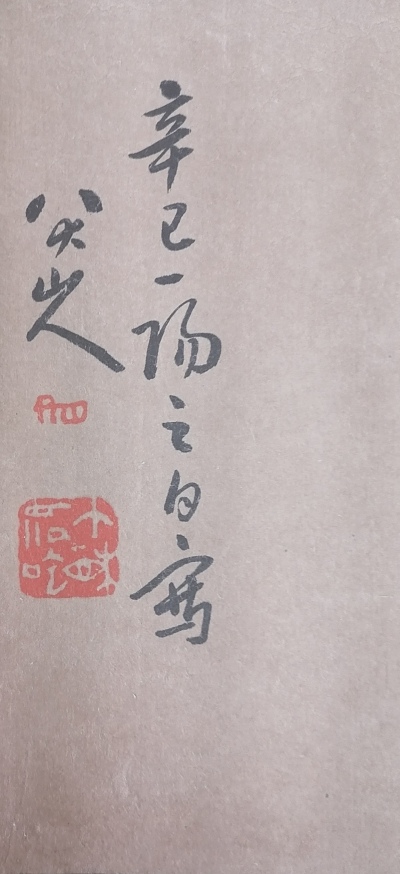 辛巳一陽之日寫
八大山人